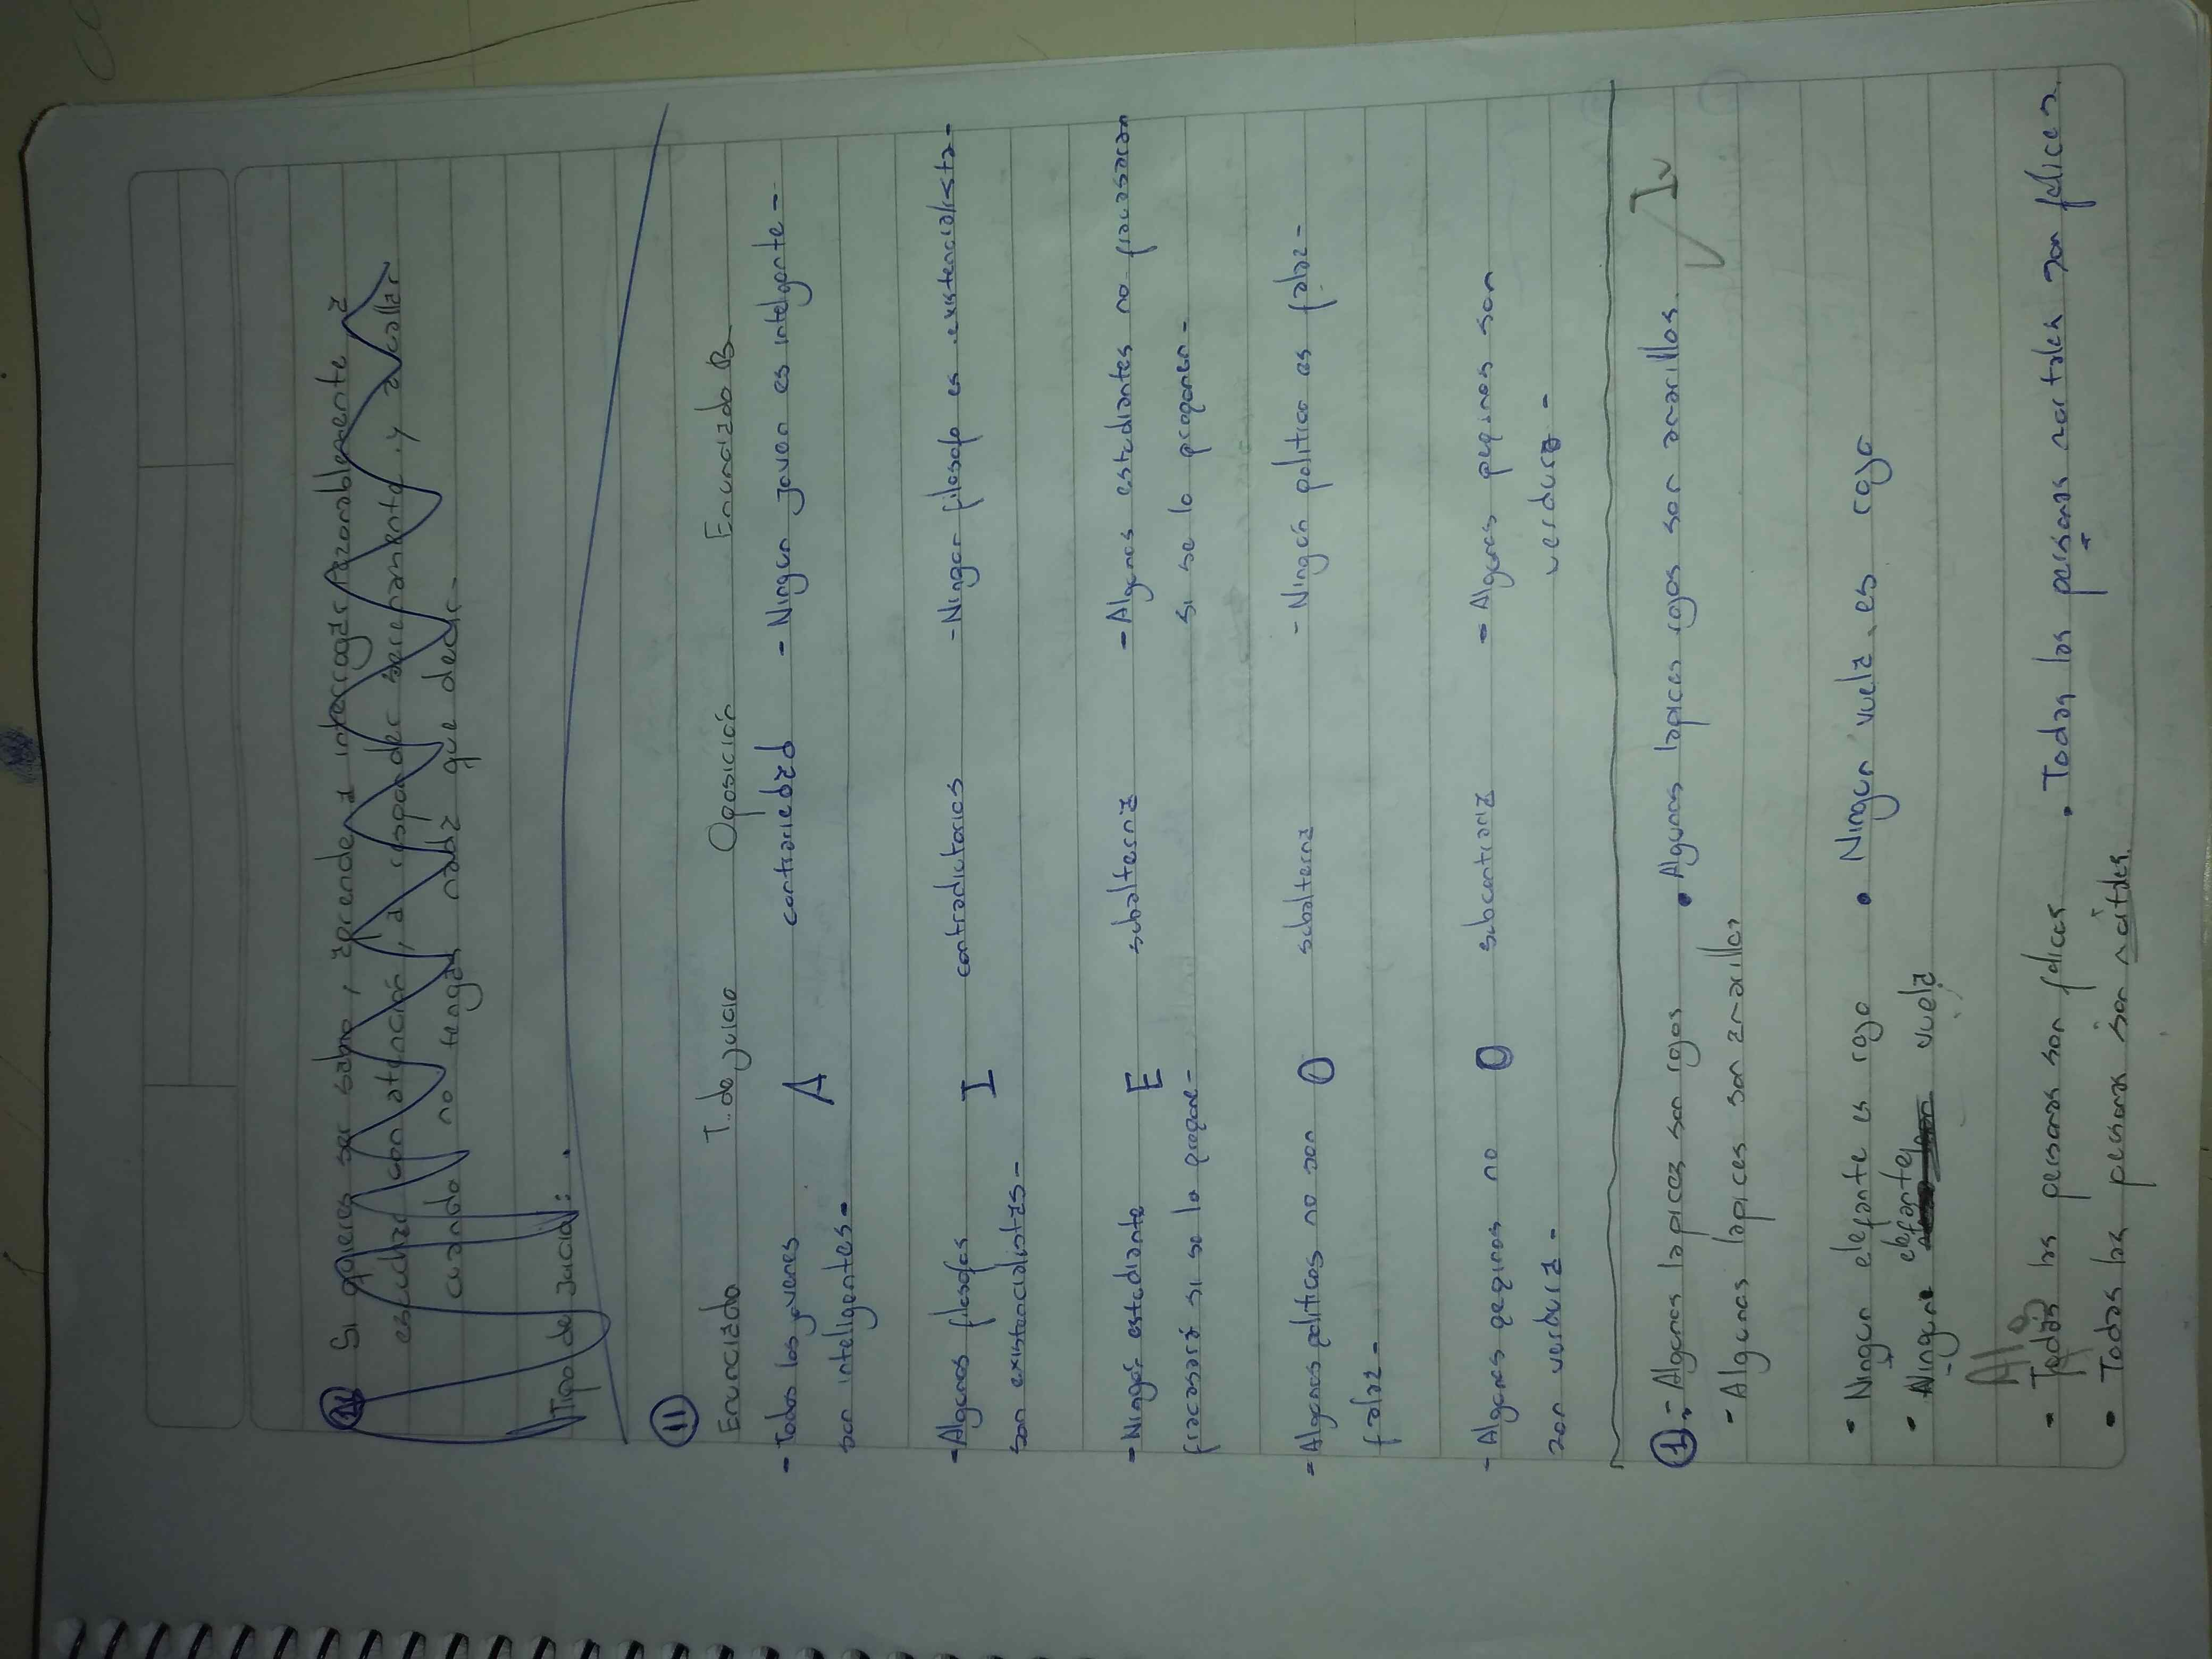 Si quieres ser sabio, aprende a interrogar razonablemente a
escuchar con atención, a responder serenamente y a callar
cuando no tengas nada que decir.
Tipo de Juicio:
11
Enunciado T. de juicio Oposición Enunciado B
- Todos los jovenes A contrariedad - Ningun joven es inteligente -
son inteligentes -
- Algunos filosofos I contradictorios - Ningun filosofo es existencialista -
son existencialistas -
- Ningún estudiante E subalterna - Algunos estudiantes no fracasaran
fracasará si se lo propone - si se lo proponen -
- Algunos politicos no son O subalterna - Ningún politico es falaz -
falaz -
- Algunos pepinos no O subcontraria - Algunos pepinos son
son verdura - verdura -
1.- Algunos lapices son rojos • Algunos lapices rojos son amarillos. IV
- Algunos lapices son amarillos
• Ningun elefante es rojo • Ningun vuela es rojo
• Ningun elefante vuela
AII
• Todas las personas son felices • Todas las personas mortales son felices.
• Todas las personas son